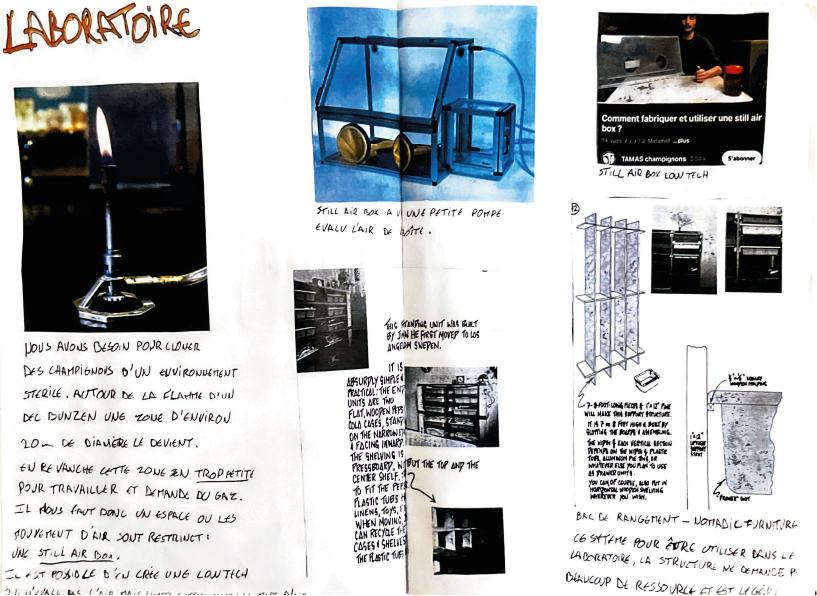 LABORATOIRE
NOUS AVONS BESOIN POUR CLONER
DES CHAMPIGNONS D'UN ENVIRONNEMENT
STERILE. AUTOUR DE LA FLAMME D'UN
BEC BUNZEN UNE ZONE D'ENVIRON
20 DE DIAMÈRE LE DEVIENT.
EN REVANCHE CETTE ZONE EN TROP PETITE
POUR TRAVAILLER ET DEMANDE DU GAZ.
IL NOUS FAUT DONC UN ESPACE OU LES
MOUVEMENT D'AIR SONT RESTRINCT:
UNE STILL AIR BOX.
IL EST POSSIBLE D'EN CRÉE UNE LOWTECH
STILL AIR BOX UNE PETITE POMPE
L'AIR DE BOÎTE.
THIS STANDING UNIT WAS BUILT
BY HE FIRST MOVED TO LOS
ANGELES SWEDEN.
IT IS
ABSURDLY SIMPLE
PRACTICAL: THE END
UNITS ARE TWO
FLAT, WOODEN PEPSI
COLA CASES, STAND
ON THE NARROW
& FACING INWARD.
THE SHELVING IS
PRESSBOARD,
CENTER SHELF.
TO FIT THE
PLASTIC TUBS
LINENS, TOYS,
WHEN MOVING,
CAN RECYCLE THE
CASES & SHELVES
THE PLASTIC TUBS
BUT THE TOP AND THE
Comment fabriquer et utiliser une still air
box ?
...plus
TAMAS champignons
S'abonner
STILL AIR BOX LOW TECH
12
7-8-FOOT-LONG PIECES OF 1"x12" PINE
WILL MAKE THIS SUPPORT STRUCTURE.
IT IS 7 OR 8 FEET HIGH & BUILT BY
SLOTTING THE BOARDS & ASSEMBLING.
THE WIDTH OF EACH VERTICAL SECTION
DEPENDS ON THE WIDTH OF PLASTIC
TUBS, ALUMINUM PIE TINS, OR
WHATEVER ELSE YOU PLAN TO USE
AS DRAWER UNITS.
YOU CAN, OF COURSE, ALSO PUT IN
HORIZONTAL WOODEN SHELVING
WHEREVER YOU WISH.
SQUARE
WOODEN MOLDING
1"x12"
UPRIGHT
SUPPORT
DRAWER UNIT
BAC DE RANGEMENT - NOMADIC FURNITURE
CE SYTÈME POUR ÊTRE UTILISER DANS LE
LABORATOIRE, LA STRUCTURE NE DEMANDE P
BEAUCOUP DE RESSOURCE ET EST